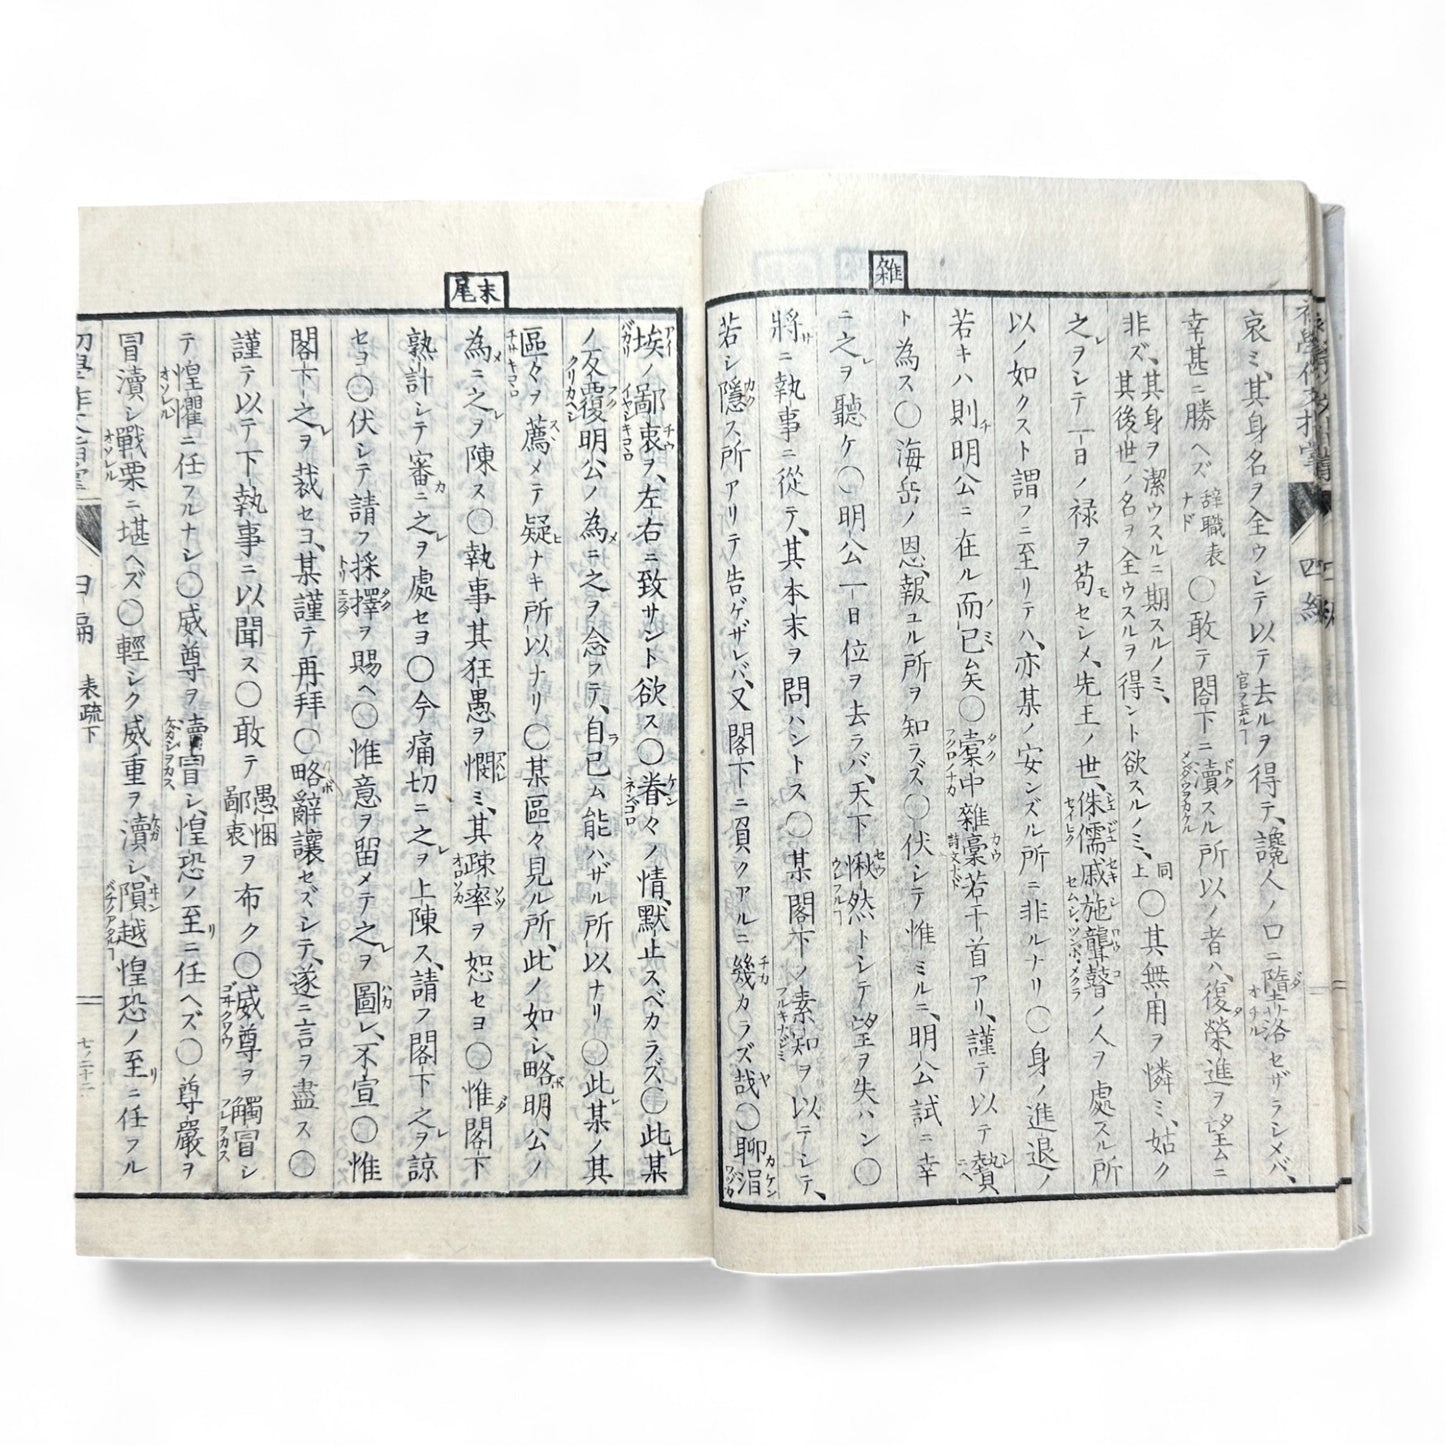 雑
哀ミ、其身名ヲ全ウシテ以テ去ルヲ得テ、讒人ノ口ニ墮落セザラシメバ、
幸甚ニ勝ヘズ 辞職表ナド 〇敢テ閤下ニ瀆スル所以ノ者ハ、復榮進ヲ望ムニ
非ズ、其身ヲ潔ウスルニ期スルノミ、其後世ノ名ヲ全ウスルヲ得ント欲スルノミ、同上 〇其無用ヲ憐ミ、姑ク
之ヲシテ一日ノ禄ヲ苟セシメ、先王ノ世、侏儒戚施聾瞽ノ人ヲ處スル所
以ノ如クスト謂フニ至リテハ、亦某ノ安ンズル所ニ非ルナリ〇身ノ進退ノ
若キハ則明公ニ在ル而已矣〇橐中雜藁若干首アリ、謹テ以テ贄
ト為ス〇海岳ノ恩、報ユル所ヲ知ラズ〇伏シテ惟ミルニ、明公試ニ幸
ニ之ヲ聽ケ〇明公一日位ヲ去ラバ、天下愀然トシテ望ヲ失ハン〇
將ニ執事ニ從テ、其本末ヲ問ハントス〇某閤下ノ素知ヲ以テシテ、
若シ隱ス所アリテ告ゲザレバ、又閣下ニ負クアルニ幾カラズ哉〇聊涓
末尾
埃ノ鄙衷ヲ、左右ニ致サント欲ス〇眷々ノ情、默止スベカラズ〇此某
ノ反覆明公ノ為ニ之ヲ念フテ、自已ム能ハザル所以ナリ〇此某ノ其
區々ヲ薦メテ疑ナキ所以ナリ〇某區々見ル所、此ノ如シ、略明公ノ
為ニ之ヲ陳ス〇執事其狂愚ヲ憫ミ、其疎率ヲ恕セヨ〇惟閣下
熟計シテ審ニ之ヲ處セヨ〇今痛切ニ之ヲ上陳ス、請フ閤下之ヲ諒
セヨ〇伏シテ請フ採擇ヲ賜ヘ〇惟意ヲ留メテ之ヲ圖レ、不宣〇惟
閣下之ヲ裁セヨ、某謹テ再拜〇略辭讓セズシテ、遂ニ言ヲ盡ス〇
謹テ以テ下執事ニ以聞ス〇敢テ愚悃鄙衷ヲ布ク〇威尊ヲ觸冒シ
テ惶懼ニ任フルナシ〇威尊ヲ瀆冒シ、惶恐ノ至ニ任ヘズ〇尊嚴ヲ
冒瀆シ戰栗ニ堪ヘズ〇輕シク威重ヲ瀆シ、隕越惶恐ノ至ニ任フル
四編 表疏下